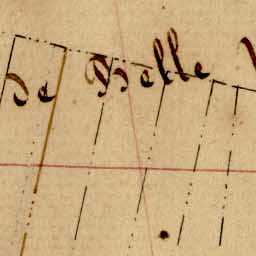 de Helle